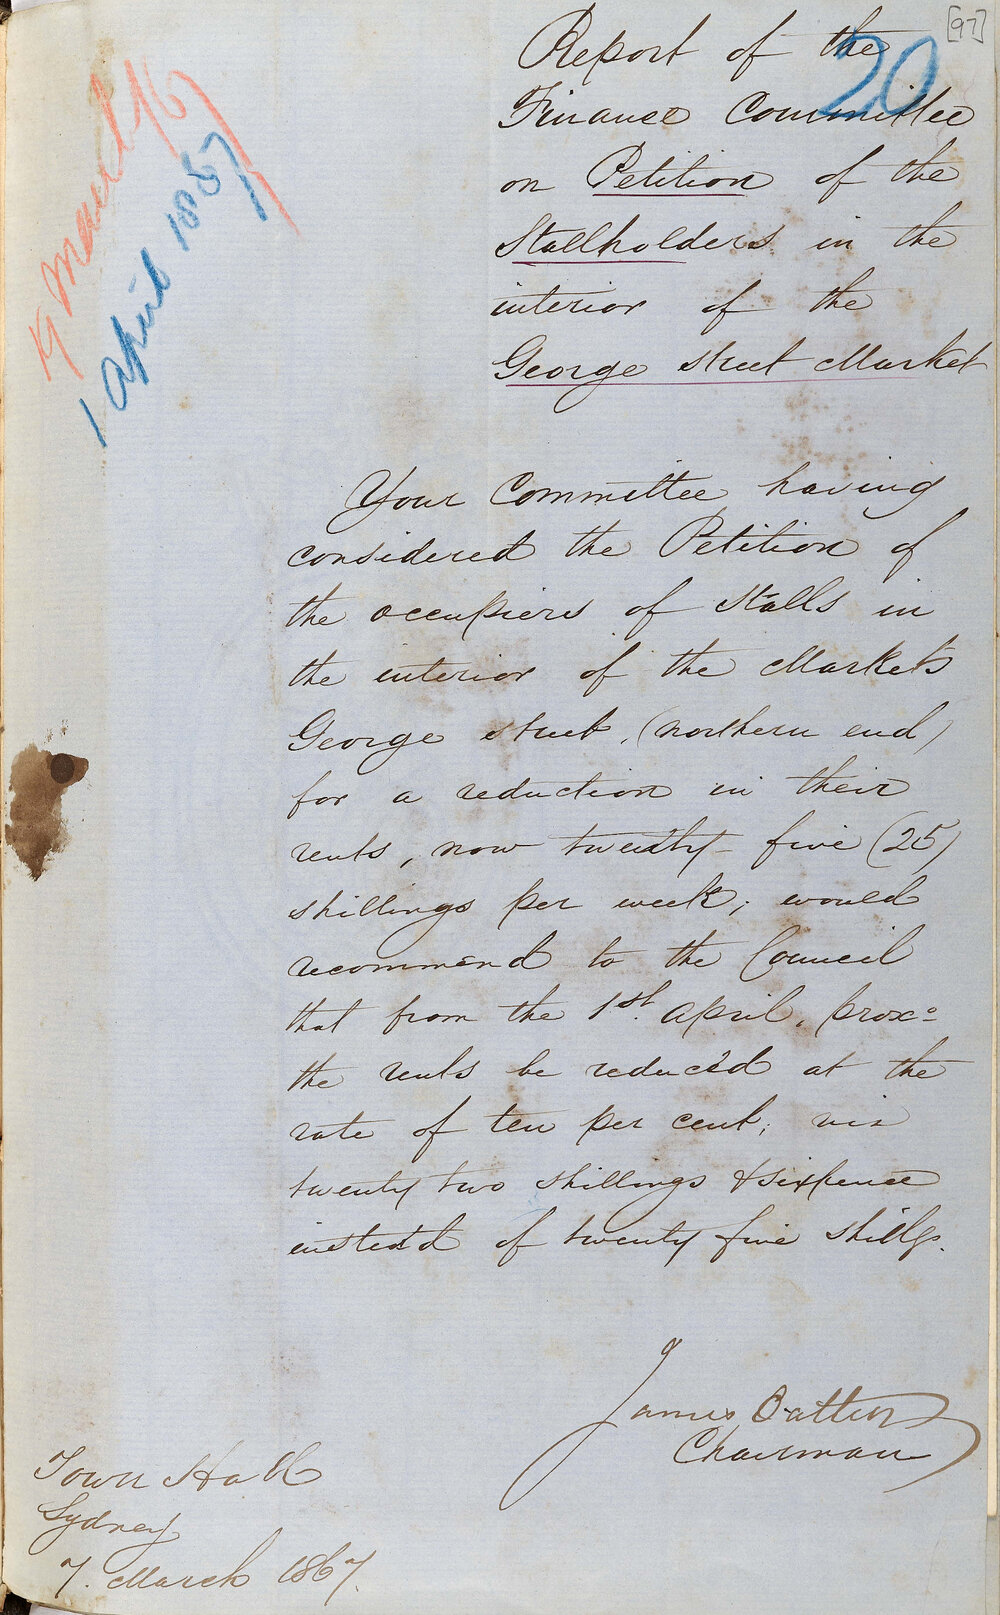 [97]
20
Report of the
Finance Committee
on Petition of the
Stallholders in the
interior of the
George street Market
1 April 1867
Your Committee having
considered the Petition of
the occupiers of Stalls in
the interior of the Markets
George street, (northern end)
for a reduction in their
rents, now twenty five (25)
shillings per week; would
recommend to the Council
that from the 1st. April, proxo
the rents be reduced at the
rate of ten per cent; viz
twenty two shillings & sixpence
instead of twenty five shillgs.
James Oatley
Chairman
Town Hall
Sydney
7. March 1867.